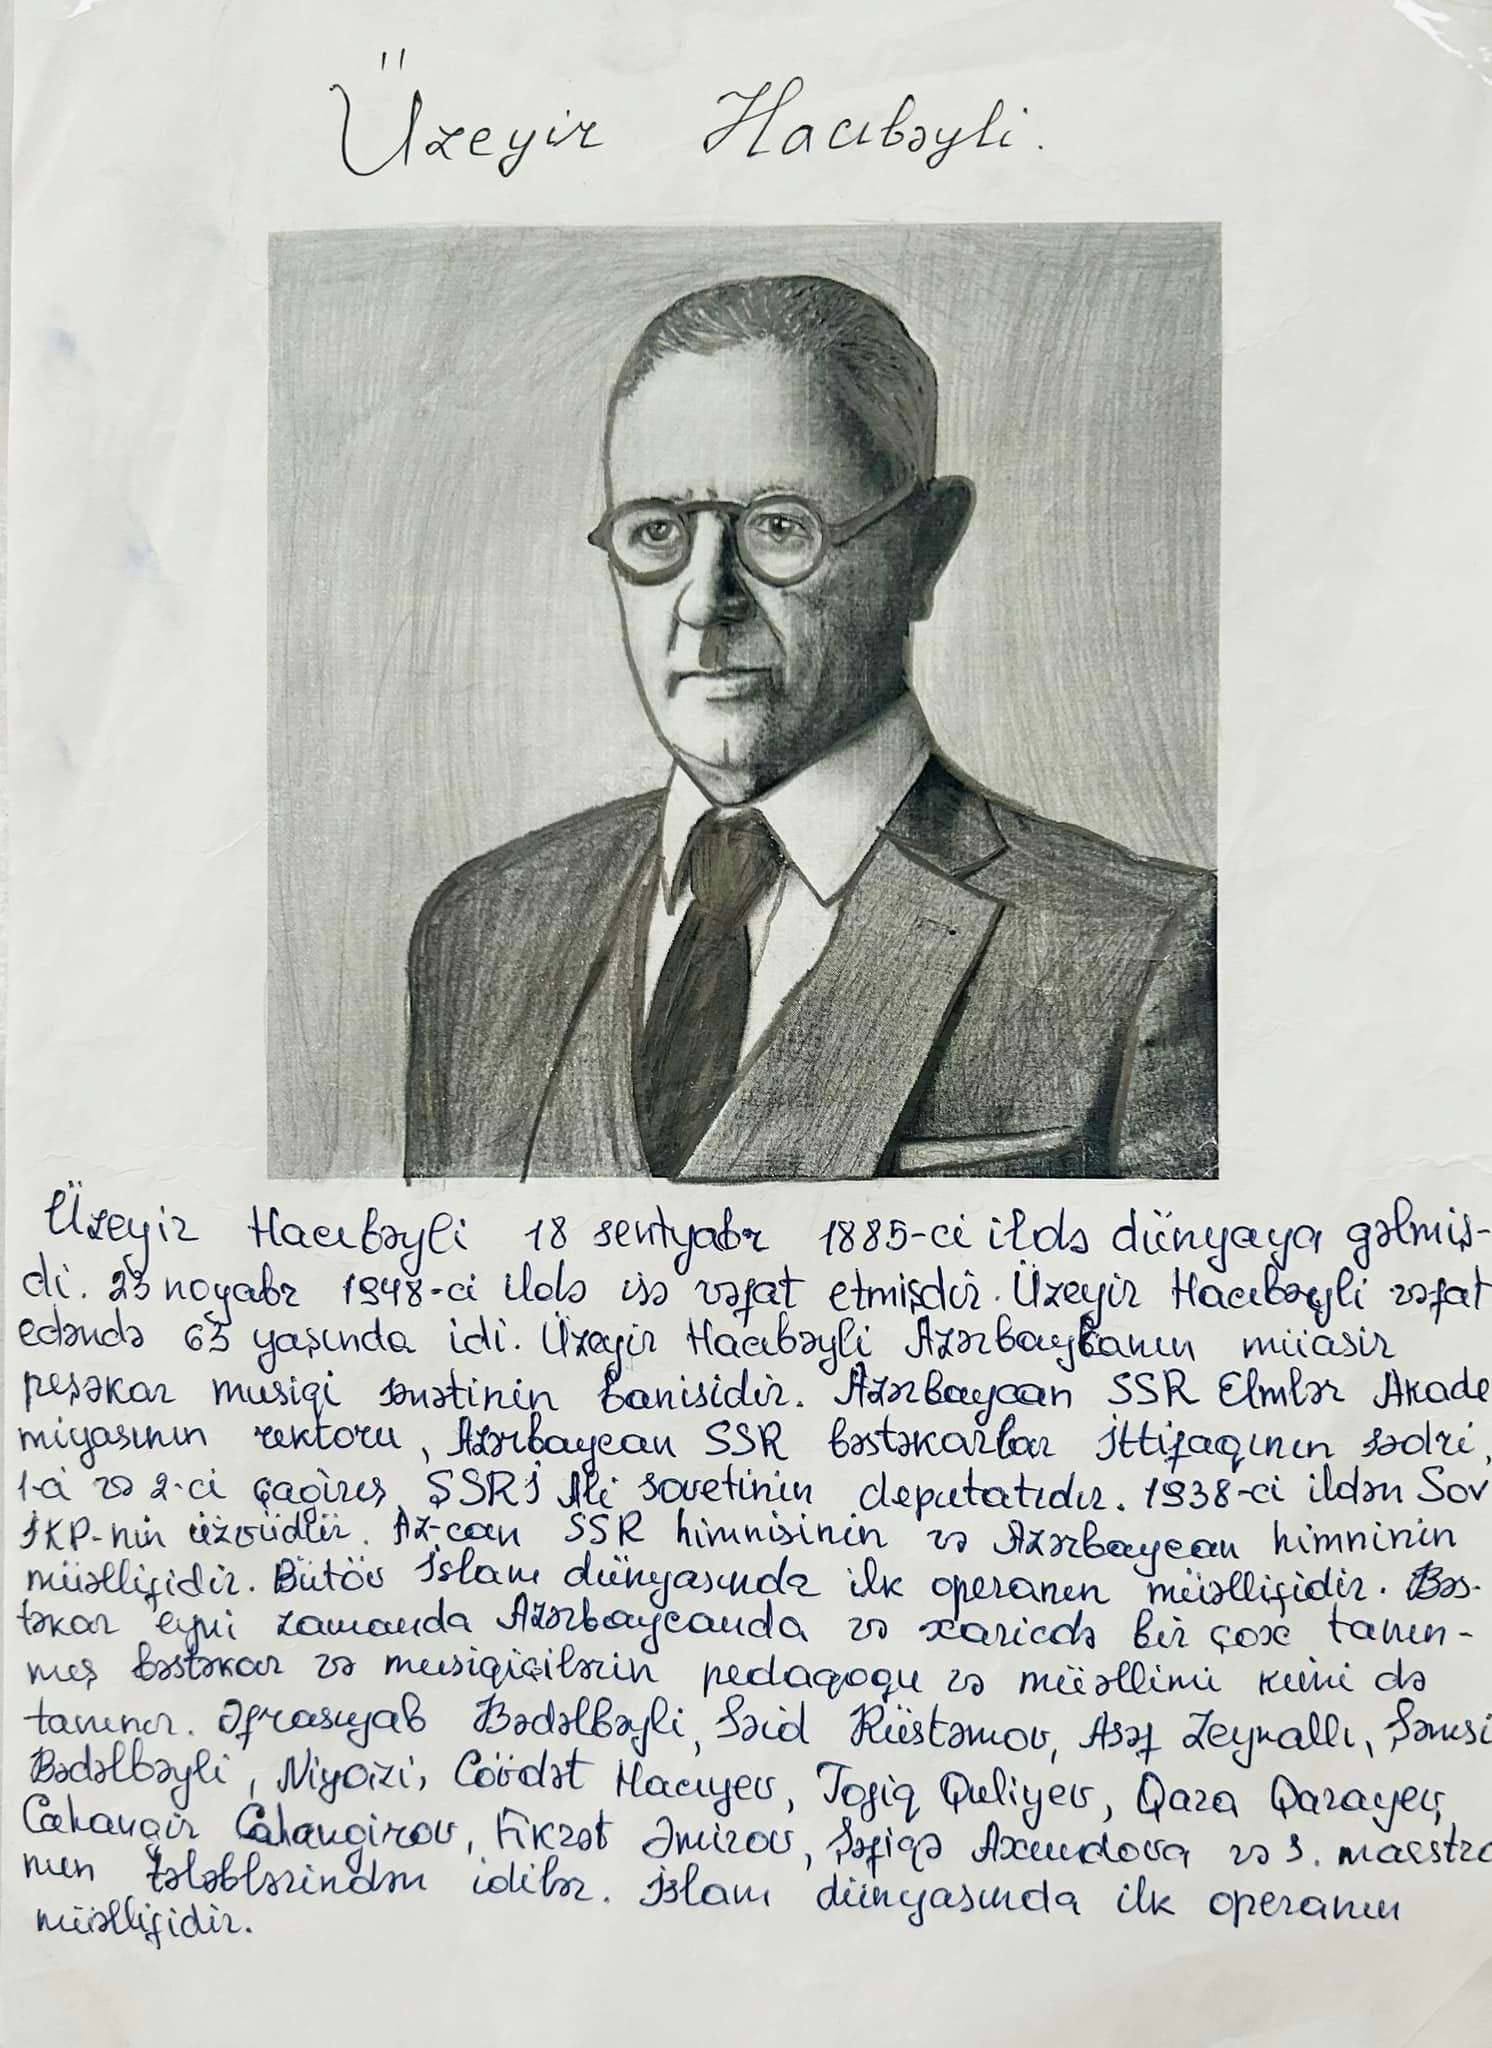 Üzeyir Hacıbəyli.
Üzeyir Hacıbəyli 18 sentyabr 1885-ci ildə dünyaya gəlmiş-
di. 23 noyabr 1948-ci ildə isə vəfat etmişdir. Üzeyir Hacıbəyli vəfat
edəndə 63 yaşında idi. Üzeyir Hacıbəyli Azərbaycanın müasir
peşəkar musiqi sənətinin banisidir. Azərbaycan SSR Elmlər Akade
miyasının rektoru, Azərbaycan SSR bəstəkarlar İttifaqının sədri,
1-ci və 2-ci çağırış SSRİ Ali sovetinin deputatıdır. 1938-ci ildən Sov
İKP-nin üzvüdür. Az-can SSR himnisinin və Azərbaycan himninin
müəllifidir. Bütöv İslam dünyasında ilk operanın müəllifidir. Bəs-
təkar eyni zamanda Azərbaycanda və xaricdə bir çox tanın-
mış bəstəkar və musiqiçilərin pedaqoqu və müəllimi kimi də
tanınır. Əfrasiyab Bədəlbəyli, Səid Rüstəmov, Asəf Zeynallı, Şəmsi
Bədəlbəyli, Niyazi, Cövdət Hacıyev, Tofiq Quliyev, Qara Qarayev,
Cahangir Cahangirov, Fikrət Əmirov, Şəfiqə Axundova və s. maestro
nun tələblərindən idilər. İslam dünyasında ilk operanın
müəllifidir.